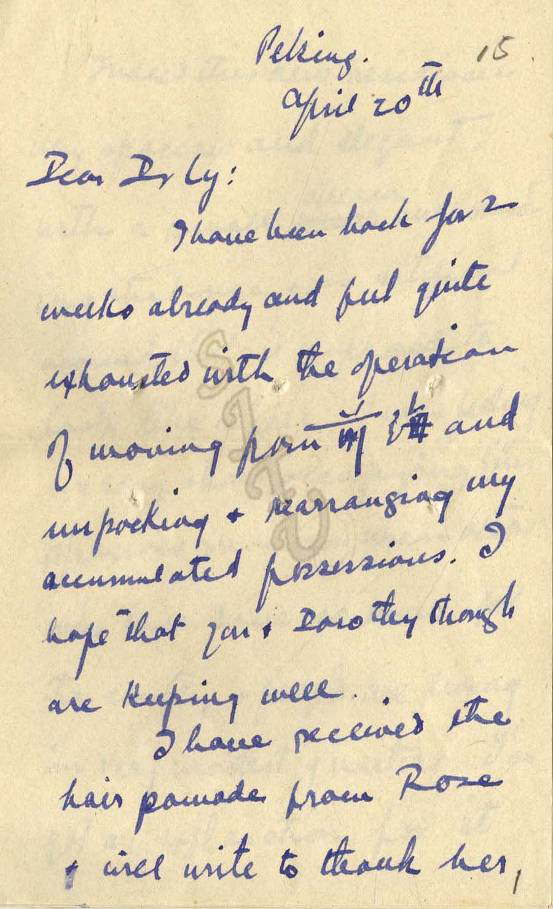 Peking. 15
April 20th
Dear Dr Cy:
I have been back for 2
weeks already and feel quite
exhausted with the operation
of moving from and
unpacking + rearranging my
accumulated possessions. I
hope that you + Dorothy though
are keeping well.
I have received the
hair pomade from Rose
+ will write to thank her,